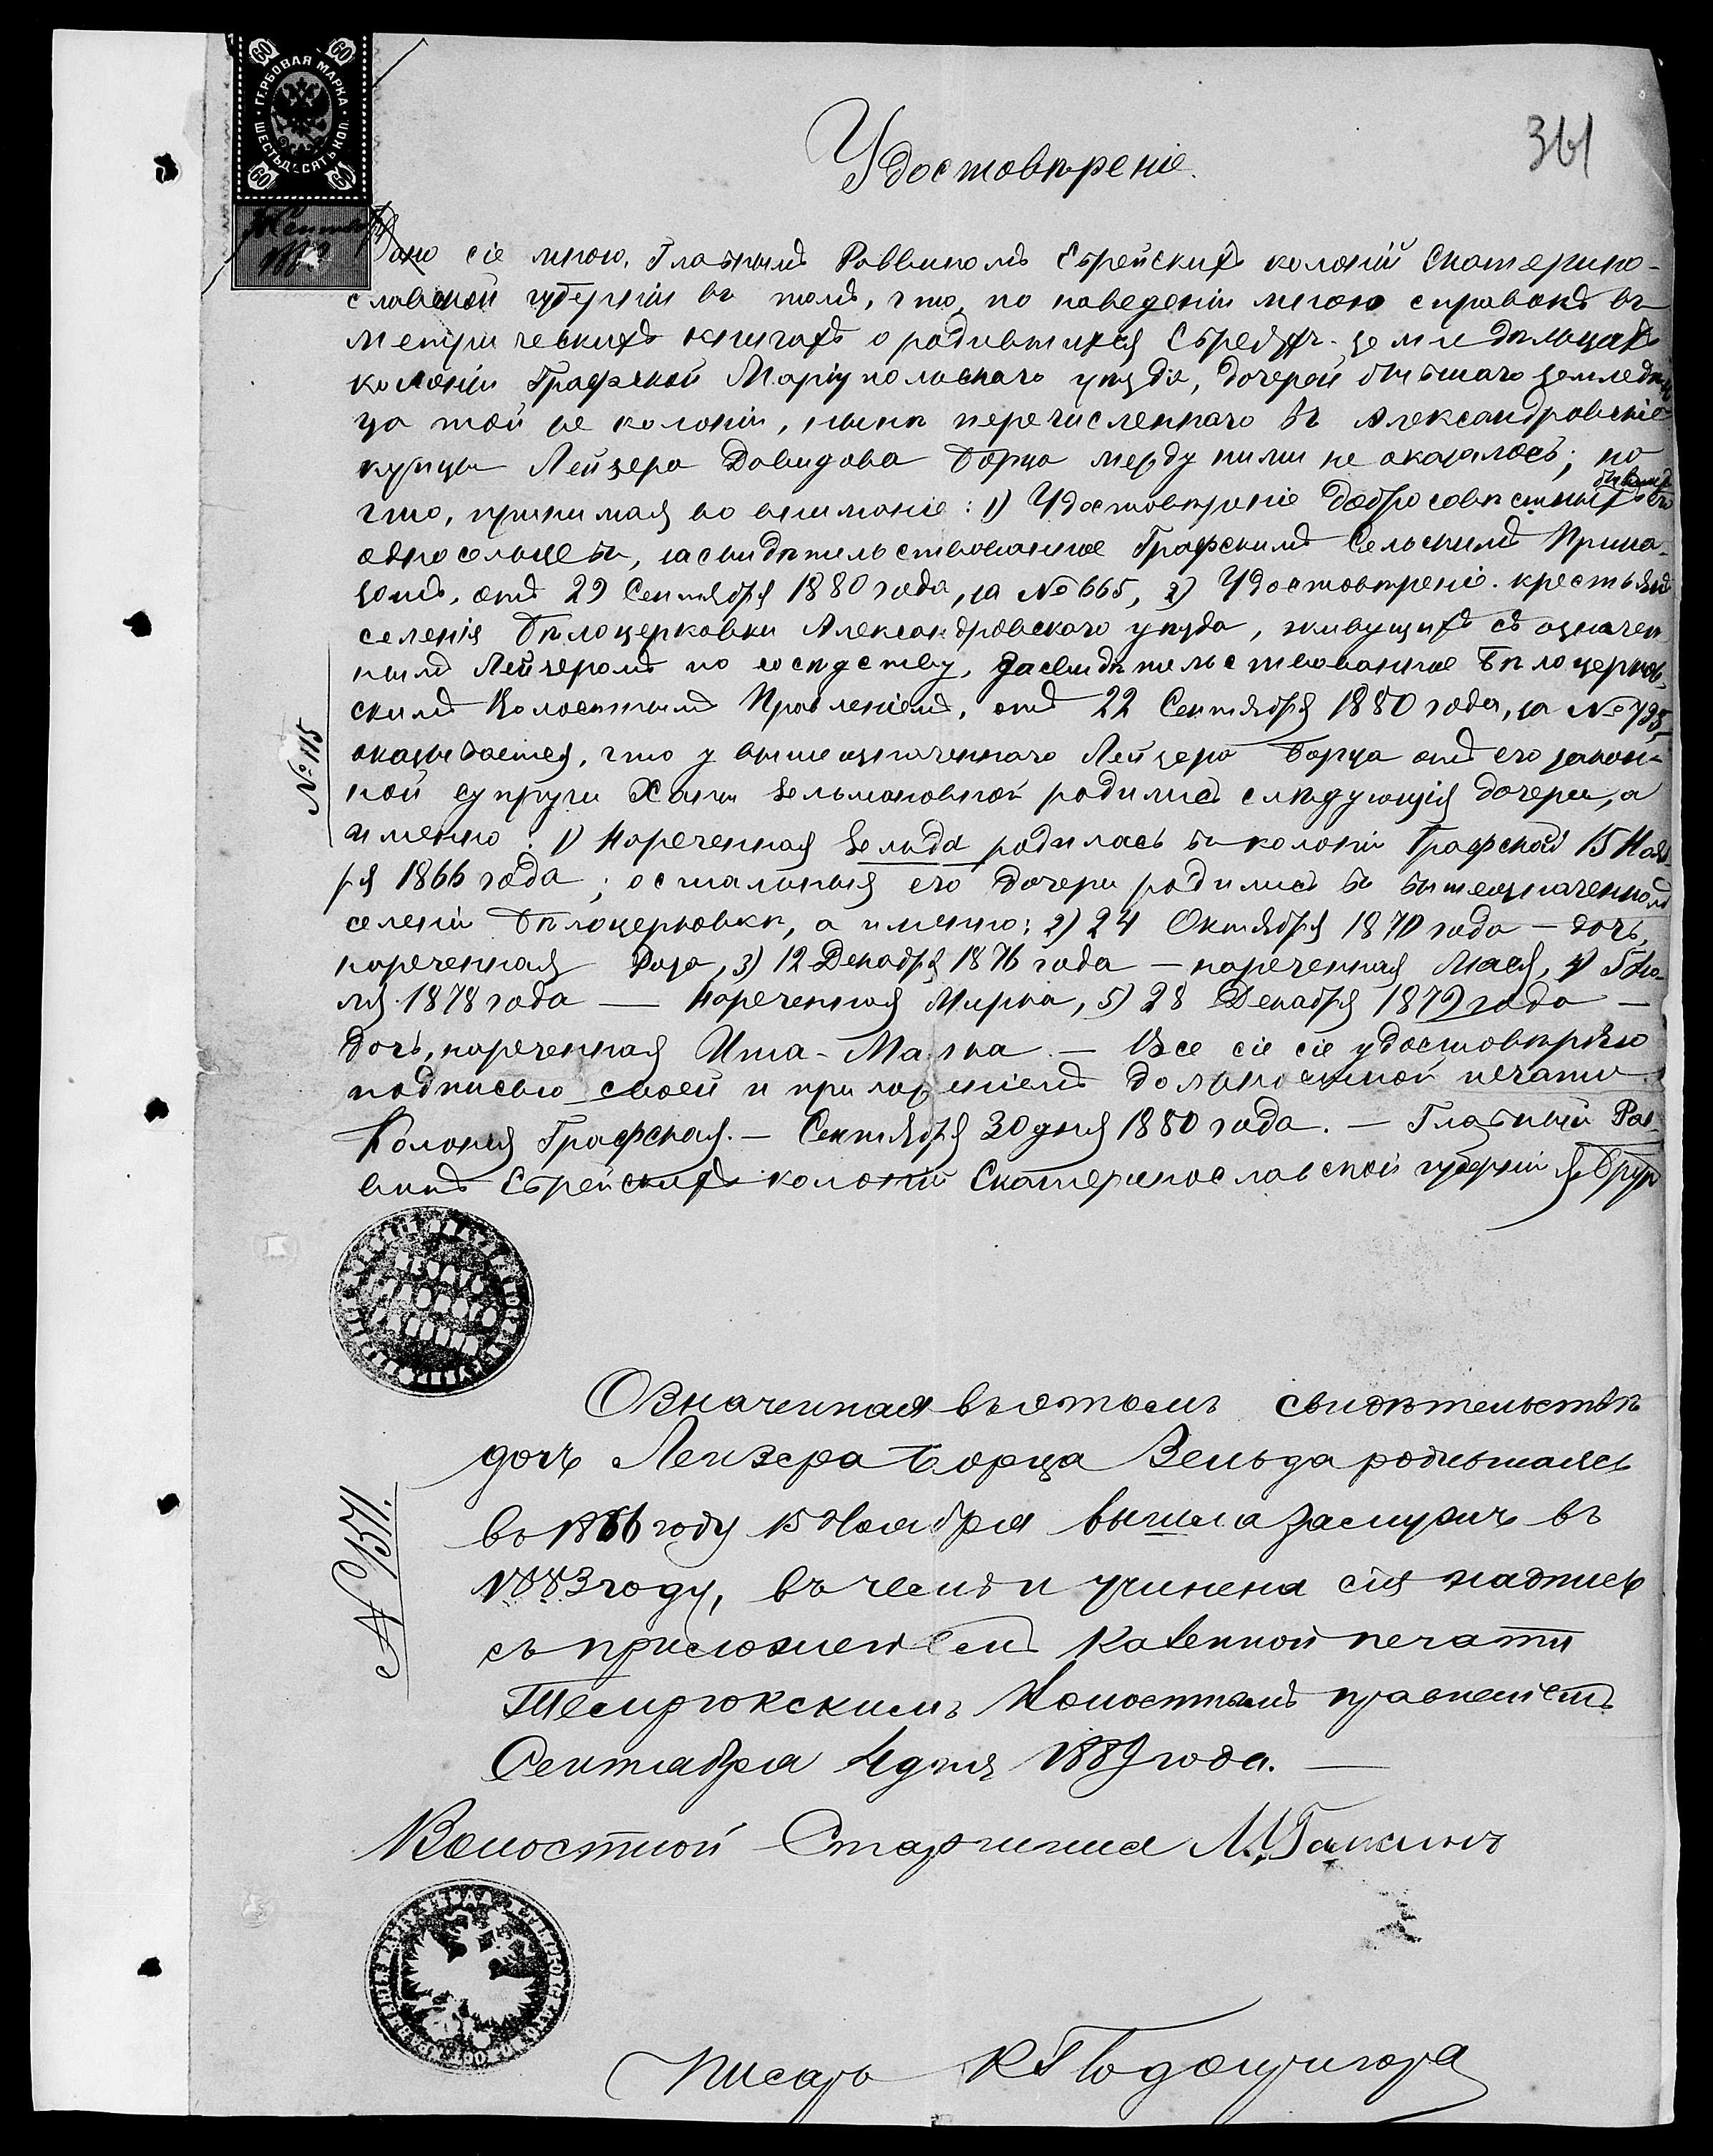 361
60 60
ГЕРБОВАЯ МАРКА
ШЕСТЬДЕСЯТЪ КОП.
60 60
Удостовѣреніе.
Дано сіе мною, Главнымъ Раввиномъ Еврейскихъ колоній Екатерино-
славской губерніи въ томъ, что, по наведеніи мною справокъ въ
метрическихъ книгахъ о родившихся Евреяхъ-земледѣльцахъ
колоніи Графской Маріупольскаго уѣзда, дочерей бывшаго земледѣль
ца той же колоніи, нынѣ перечисленнаго въ Александровскіе
купцы Лейзера Давидова Борца между ними не оказалось; но
что, принимая во вниманіе: 1) Удостовѣреніе добросовѣстныхъ бывшихъ его
односельцевъ, засвидѣтельствованное Графскимъ Сельскимъ Прика-
зомъ, отъ 29 Сентября 1880 года, за № 665, 2) Удостовѣреніе крестьянъ
селенія Бѣлоцерковки Александровскаго уѣзда, живущихъ съ означен
нымъ Лейзеромъ по сосѣдству, засвидѣтельствованное Бѣлоцерков-
скимъ Волостнымъ Правленіемъ, отъ 22 Сентября 1880 года, за №
оказывается, что у вышеозначеннаго Лейзера Борца отъ его закон-
ной супруги Ханы Зельмановной родились слѣдующія дочери, а
именно: 1) Нареченная Зельда родилась въ колоніи Графской 15 Нояб
ря 1866 года; остальныя его дочери родились въ вышеозначенномъ
селеніи Бѣлоцерковкѣ, а именно: 2) 24 Октября 1870 года — дочь,
нареченная Роза, 3) 12 Декабря 1876 года — нареченная Мася, 4) 5 Ію-
ля 1878 года — нареченная Мирка, 5) 28 Декабря 1879 года —
дочь, нареченная Ита-Малка. — Все сіе сіе удостовѣряю
подписью своей и приложеніемъ должностной печати.
Колонія Графская. — Сентября 30 дня 1880 года. — Главный Рав-
винъ Еврейскихъ колоній Екатеринославской губерніи
№ 115
Означенная въ этомъ свидѣтельствѣ
дочь Лейзера Борца Зельда родившаяся
въ 1866 году 15 Ноября вышла замужъ въ
1883 году, въ чемъ и учинена сія надпись
съ приложеніемъ казенной печати
Темрюкскимъ Волостнымъ правленіемъ
Сентября 4 дня 1889 года. —
№ 1571.
Волостной Старшина М. Галкинъ
Писарь